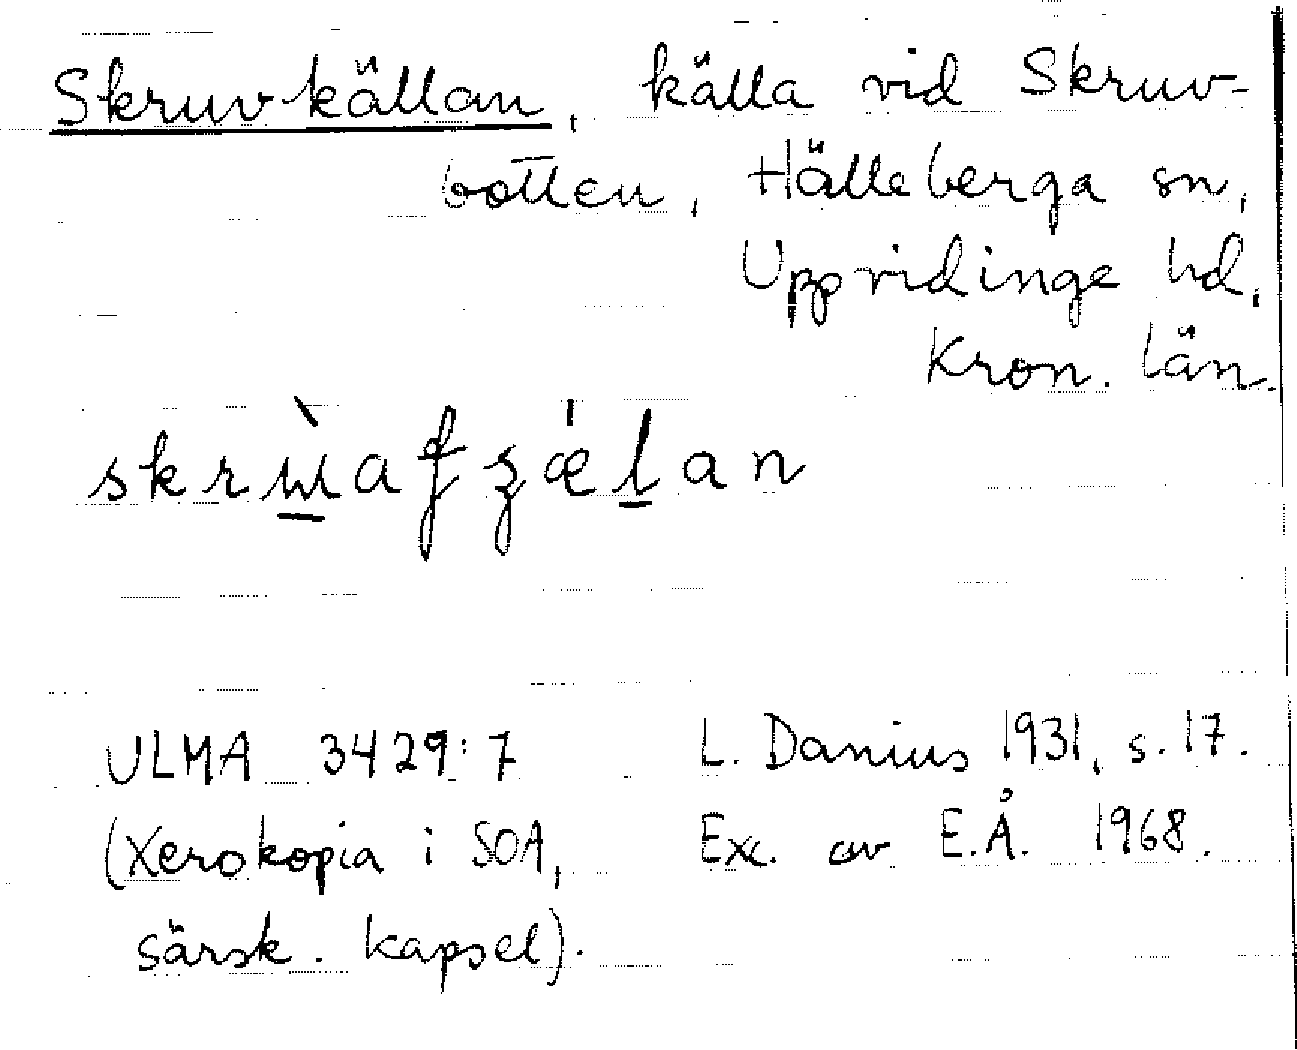 Skruvkällan, källa vid Skruv-
botten, Hälleberga sn,
Uppvidinge hd,
Kron. län.
ULMA 3429:7 L. Danius 1931, s. 17.
(Xerokopia i SOA, Exc. av E.Å. 1968.
särsk. kapsel).